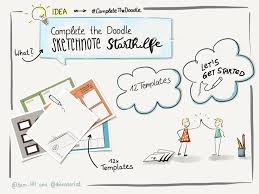 IDEA
#CompleteTheDoodle
Complete the Doodle
SKETCHNOTE Starthilfe
What?
12 Templates
LET'S
GET STARTED
12x
Templates